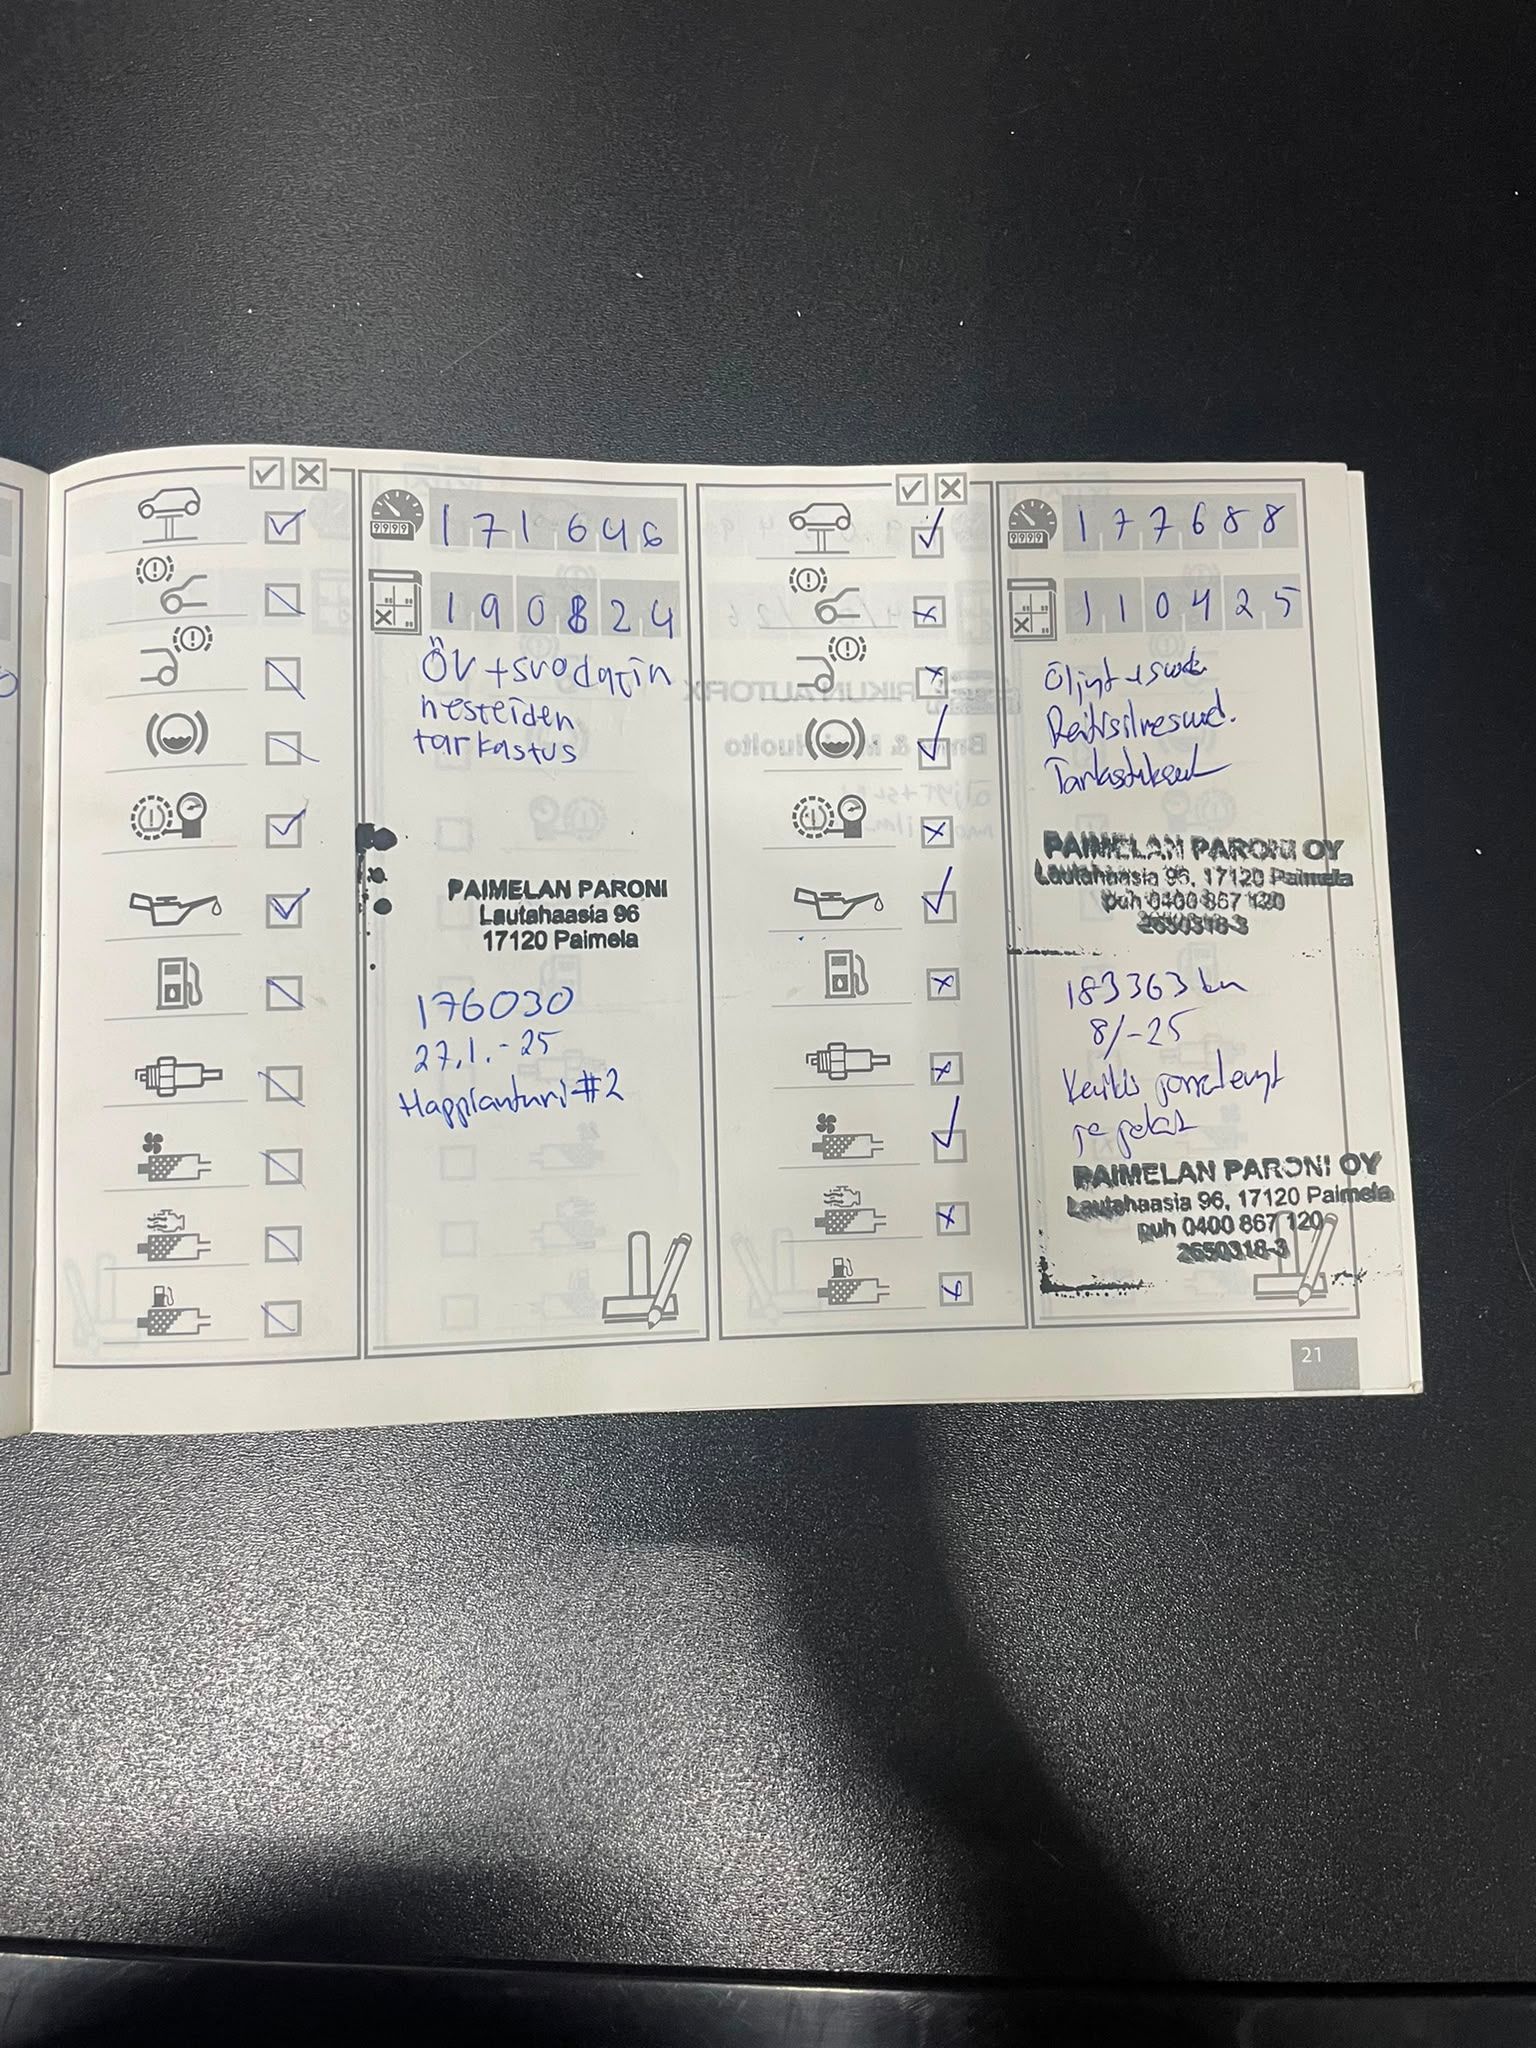 171646
190824
ÖV + suodatin
nesteiden
tarkastus
PAIMELAN PARONI
Lautahaasia 96
17120 Paimela
176030
27.1.-25
Happianturi #2
177688
110425
Öljyt + suod.
Raitisilmasuod.
Tarkastukset
PAIMELAN PARONI OY
Lautahaasia 96, 17120 Paimela
puh 0400 867 120
2650318-3
183363 km
8/-25
Kaikki
ja
PAIMELAN PARONI OY
Lautahaasia 96, 17120 Paimela
puh 0400 867 120
2650318-3
21